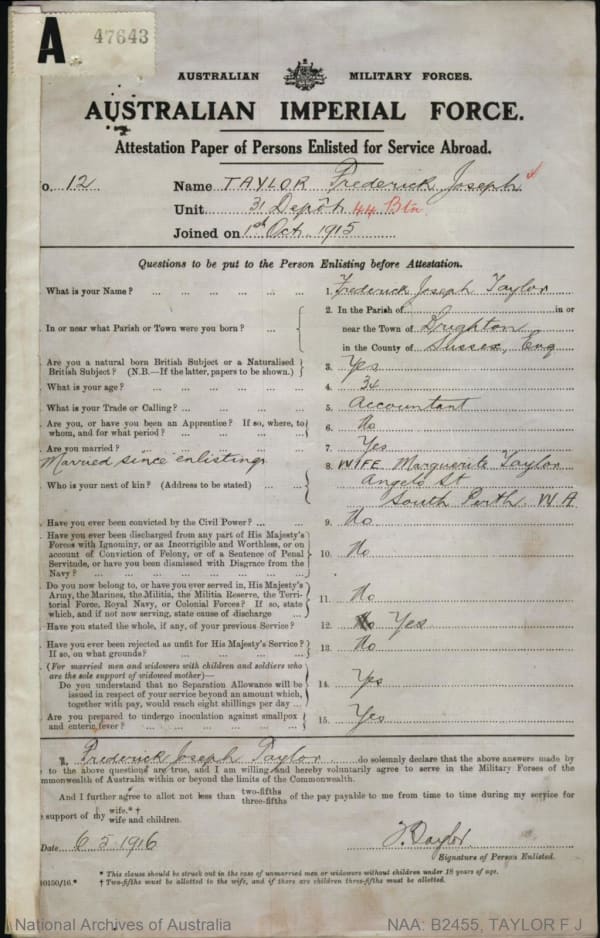 A 47643
AUSTRALIAN MILITARY FORCES.
AUSTRALIAN IMPERIAL FORCE.
Attestation Paper of Persons Enlisted for Service Abroad.
o. 12 Name TAYLOR Frederick Joseph
Unit 31 Depôt 44 Btn
Joined on 1st Oct 1915
Questions to be put to the Person Enlisting before Attestation.
What is your Name? ... ... ... ... 1. Frederick Joseph Taylor
2. In the Parish of in or
In or near what Parish or Town were you born? ... near the Town of Brighton
in the County of Sussex, Eng
Are you a natural born British Subject or a Naturalised
British Subject? (N.B.—If the latter, papers to be shown.) 3. Yes
What is your age? ... ... ... ... 4. 34
What is your Trade or Calling? ... ... ... 5. Accountant
Are you, or have you been an Apprentice? If so, where, to
whom, and for what period? ... ... ... 6. No
Are you married? ... ... ... ... 7. Yes
Married since enlisting 8. WIFE Marguerite Taylor
Who is your next of kin? (Address to be stated) ... ... Angelo St
South Perth W A
Have you ever been convicted by the Civil Power? ... ... 9. No
Have you ever been discharged from any part of His Majesty's
Forces with Ignominy, or as Incorrigible and Worthless, or on
account of Conviction of Felony, or of a Sentence of Penal 10. No
Servitude, or have you been dismissed with Disgrace from the
Navy? ... ... ... ... ...
Do you now belong to, or have you ever served in, His Majesty's
Army, the Marines, the Militia, the Militia Reserve, the Terri-
torial Force, Royal Navy, or Colonial Forces? If so, state 11. No
which, and if not now serving, state cause of discharge ...
Have you stated the whole, if any, of your previous Service? 12. No Yes
Have you ever been rejected as unfit for His Majesty's Service? 13. No
If so, on what grounds? ... ... ... ...
(For married men and widowers with children and soldiers who
are the sole support of widowed mother)—
Do you understand that no Separation Allowance will be 14. Yes
issued in respect of your service beyond an amount which,
together with pay, would reach eight shillings per day ...
Are you prepared to undergo inoculation against smallpox
and enteric fever? ... ... ... ... 15. Yes
I, Frederick Joseph Taylor do solemnly declare that the above answers made by
to the above questions are true, and I am willing and hereby voluntarily agree to serve in the Military Forces of the
mmonwealth of Australia within or beyond the limits of the Commonwealth.
And I further agree to allot not less than two-fifths
three-fifths of the pay payable to me from time to time during my service for
support of my wife.* †
wife and children.
Date 6 5 1916 F J Taylor
Signature of Person Enlisted.
* This clause should be struck out in the case of unmarried men or widowers without children under 18 years of age.
† Two-fifths must be allotted to the wife, and if there are children three-fifths must be allotted.
National Archives of Australia NAA: B2455, TAYLOR F J